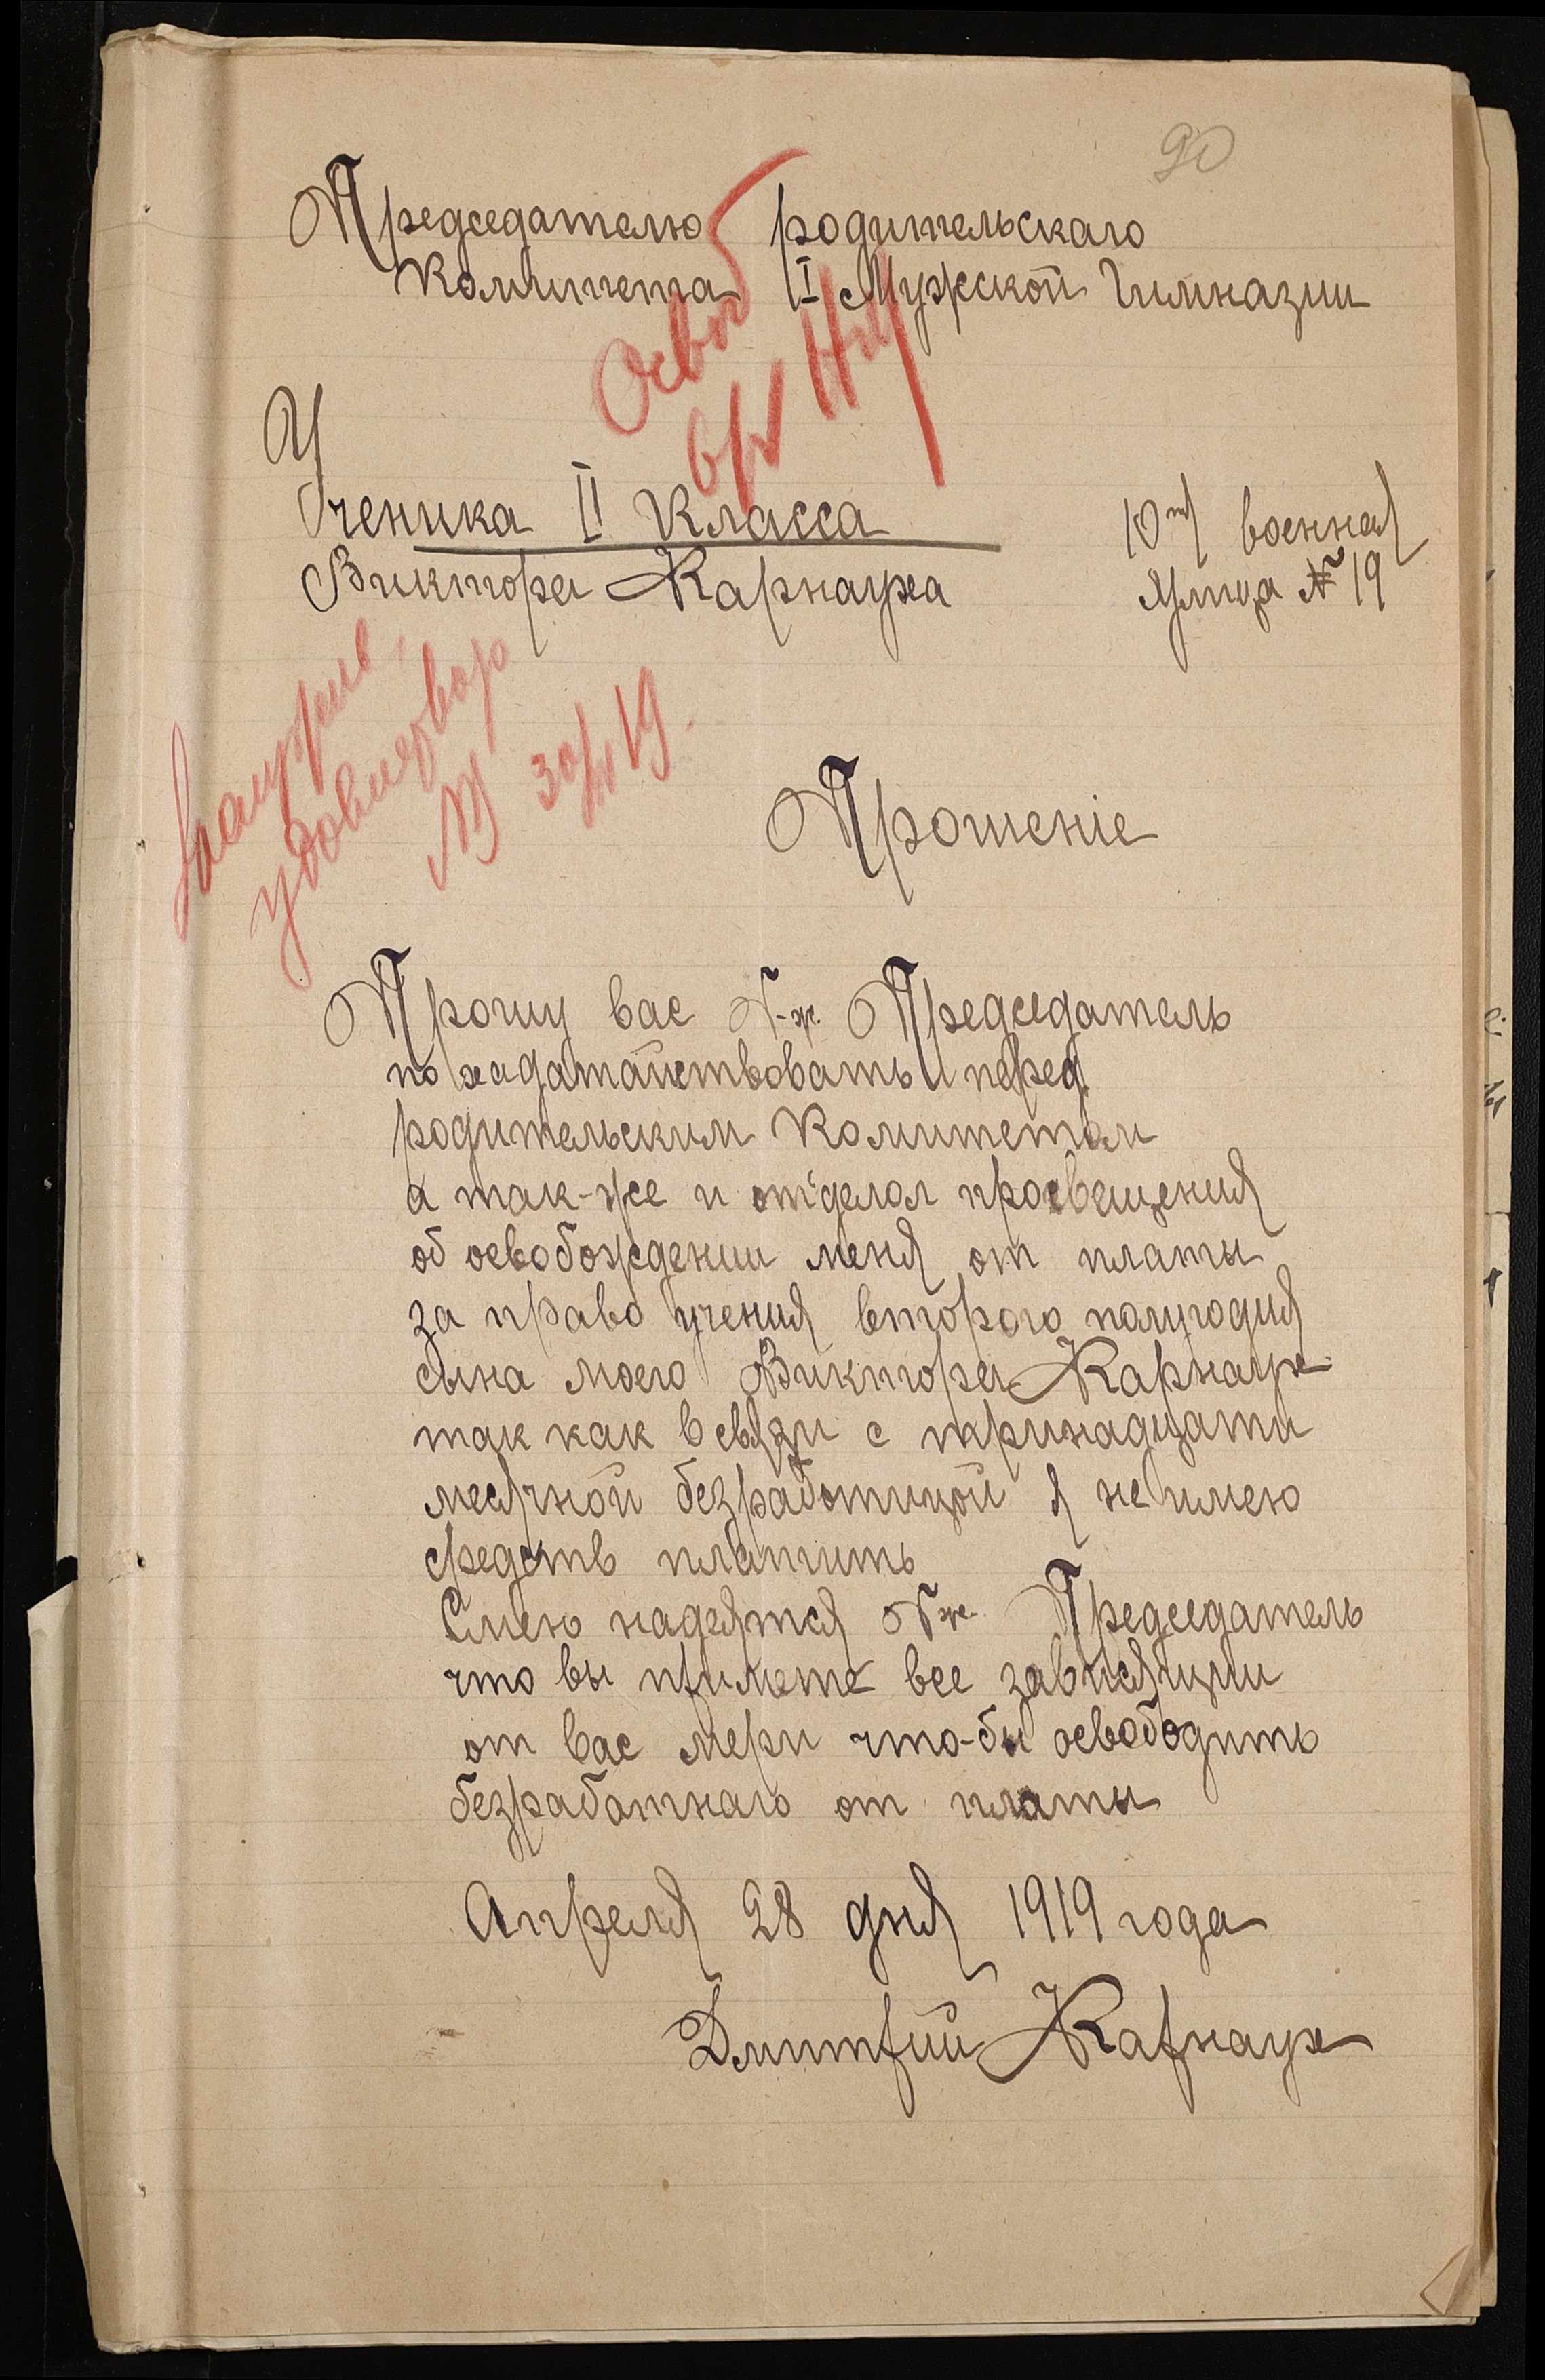 90
Председателю родительскаго
Коммитета I Мужской Гимназии
Освоб
У
Ученика II Класса
Виктора Карнауха
10тя военная
Улица № 19
удовлетвор
30/IV 19.
Прошеніе
Прошу вас Г-н. Председатель
по хадатайствовать перед
родительским Комитетом
а так-же и отделом просвещения
об освобождении меня от платы
за право учения второго полугодия
сына моего Виктора Карнаух
так как в связи с тринадцати
месячной безработицой я не имею
средств платить
Смею надеятся Г-н. Председатель
что вы примете все зависящии
от вас мери что-бы освободить
безработнаго от платы
Апреля 28 дня 1919 года
Дмитрий Карнаух